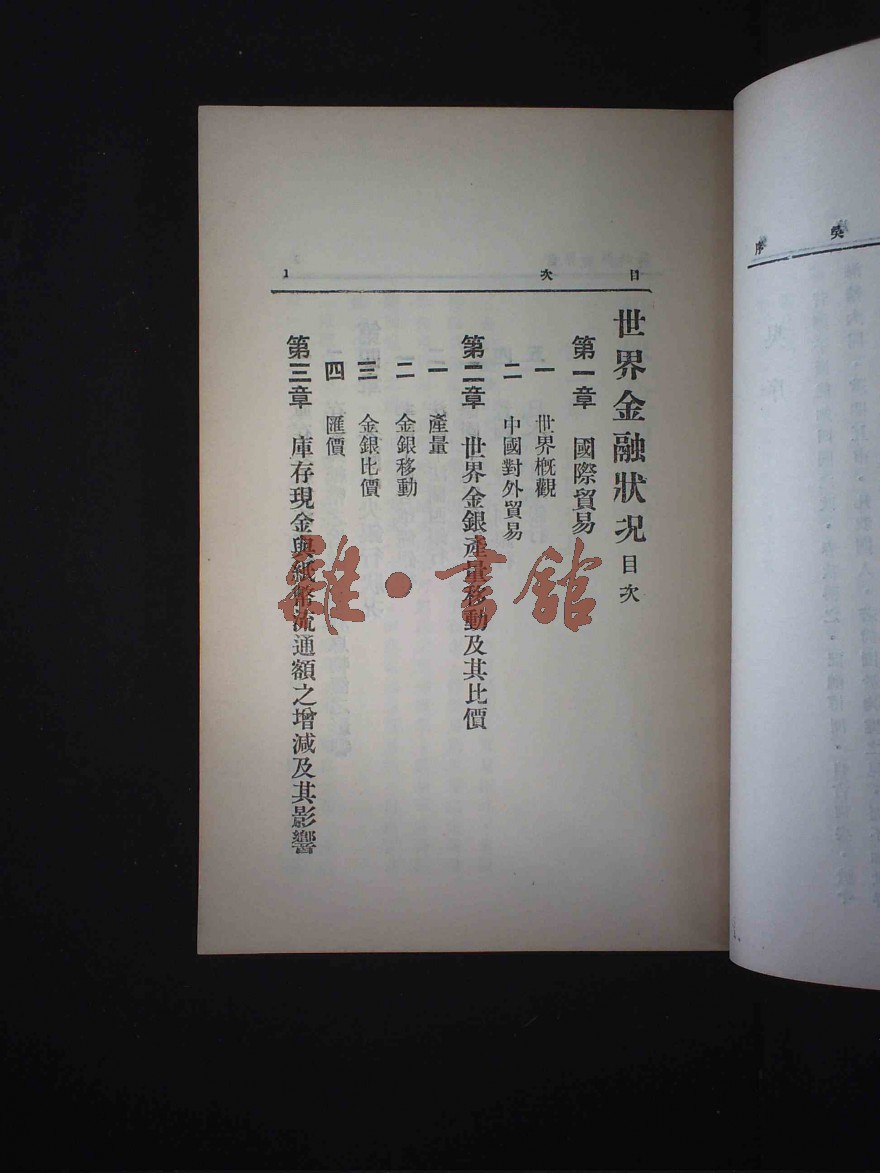 目次 1
世界金融狀况 目次
第一章 國際貿易
一 世界概觀
二 中國對外貿易
第二章 世界金銀產量移動及其比價
一 產量
二 金銀移動
三 金銀比價
四 匯價
第三章 庫存現金與紙幣流通額之增減及其影響
雜·書館
吳序